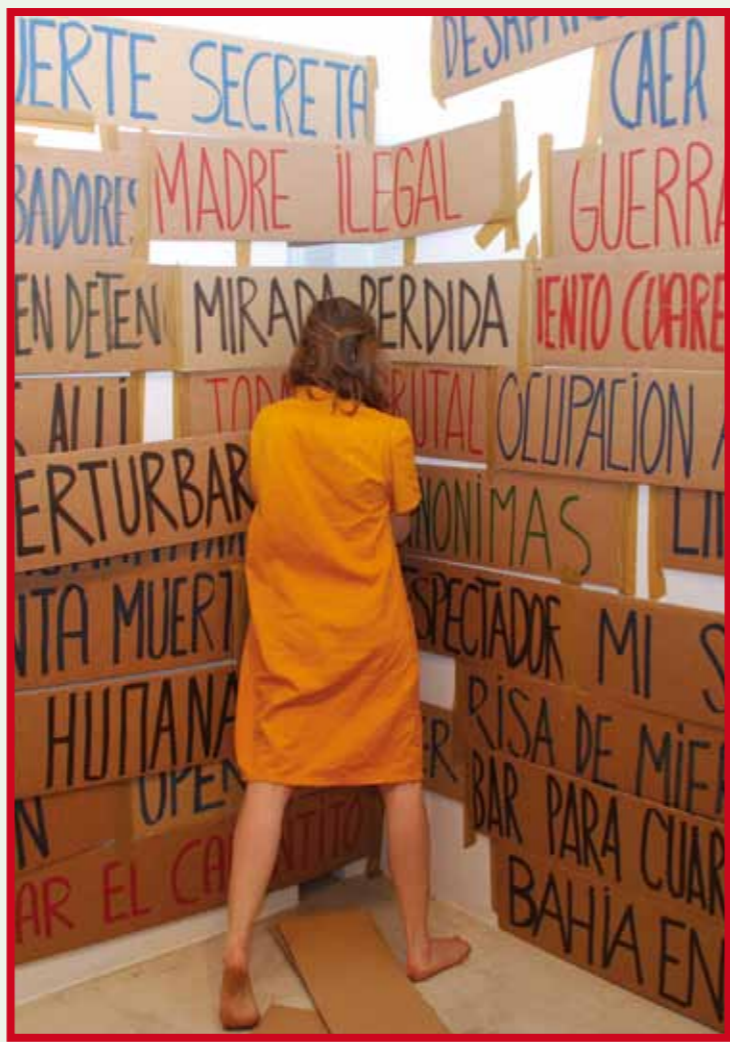 ERTE SECRETA
CAER
BADORES
MADRE ILEGAL
GUERRA
EN DETEN
MIRADA PERDIDA
IENTO CUARE
ALLI
TOD RUTAL
OCUPACION A
ERTURBAR
NONIMAS
NTA MUERT
SPECTADOR MI S
HUMANA
RISA DE MIER
OPE
ER
BAR PARA CUAR
AR EL CA ATITO
BAHIA EN